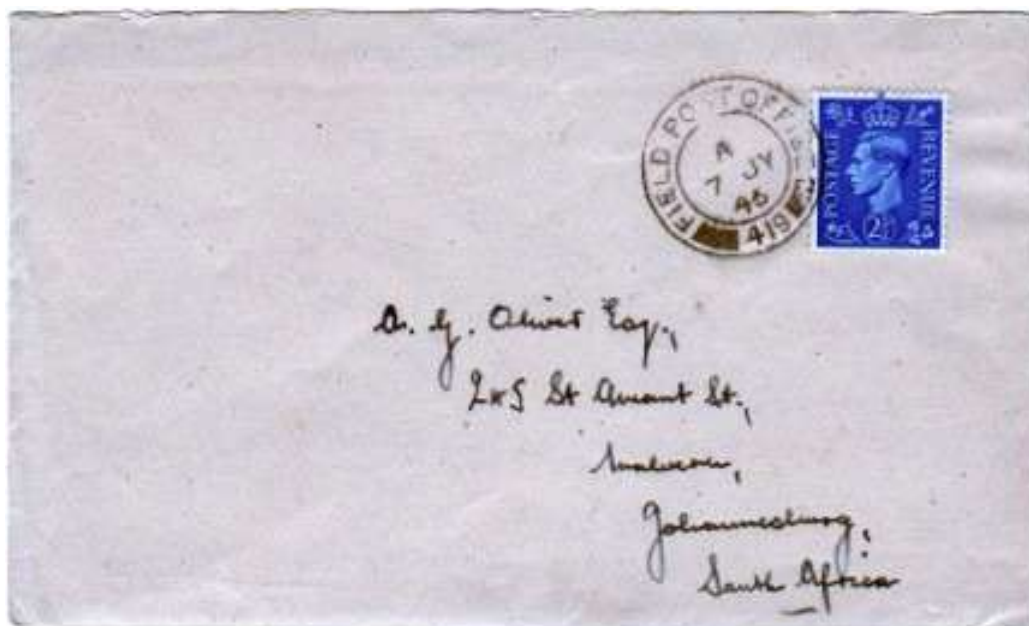 FIELD POST OFFICE
A
7 JY
46
419
POSTAGE
REVENUE
2½D
A. G. Oliver Esq.,
245 St Amant St.,
Malvern,
Johannesburg,
South Africa